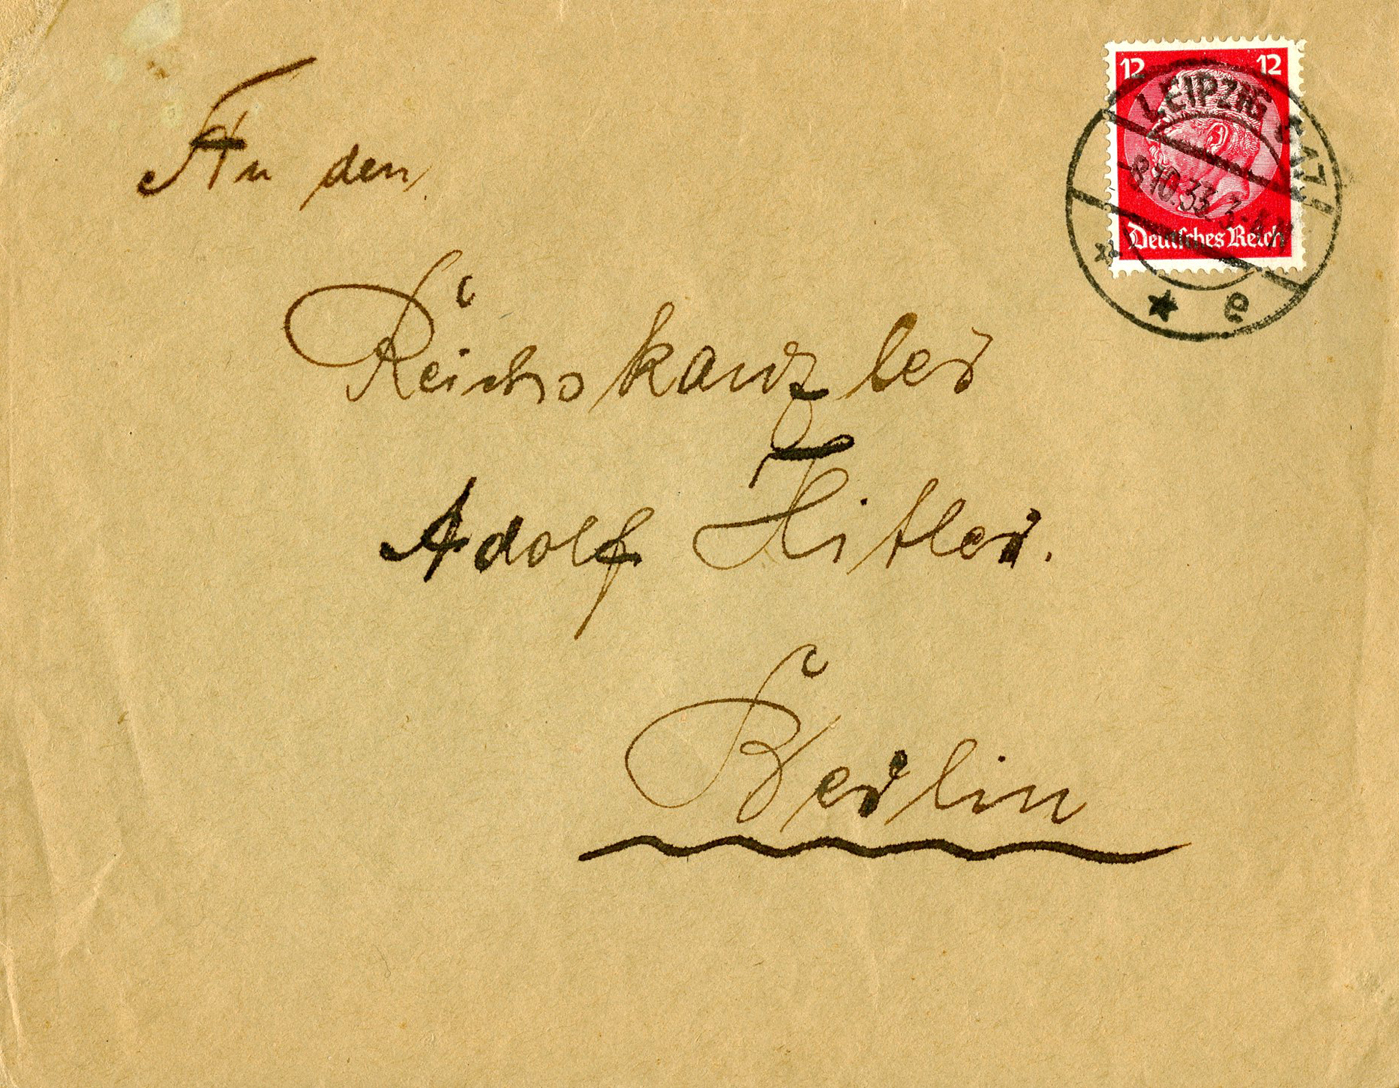 12 12
LEIPZIG C 1
8.10.33. 3-4 N
Deutsches Reich
* e
An den
Reichskanzler
Adolf Hitler.
Berlin